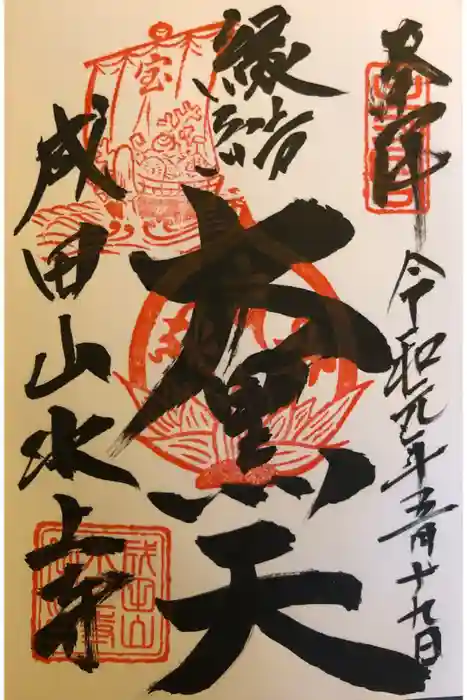 奉拝
令和元年五月十九日
縁結
大黒天
宝
成田山水上寺